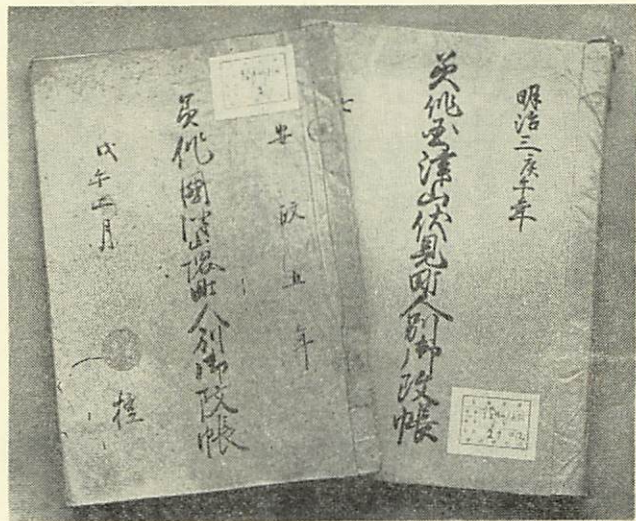 明治三庚午年
美作国津山伏見町人別御改帳
安政五年
美作國津山町人別御改帳
戊午月